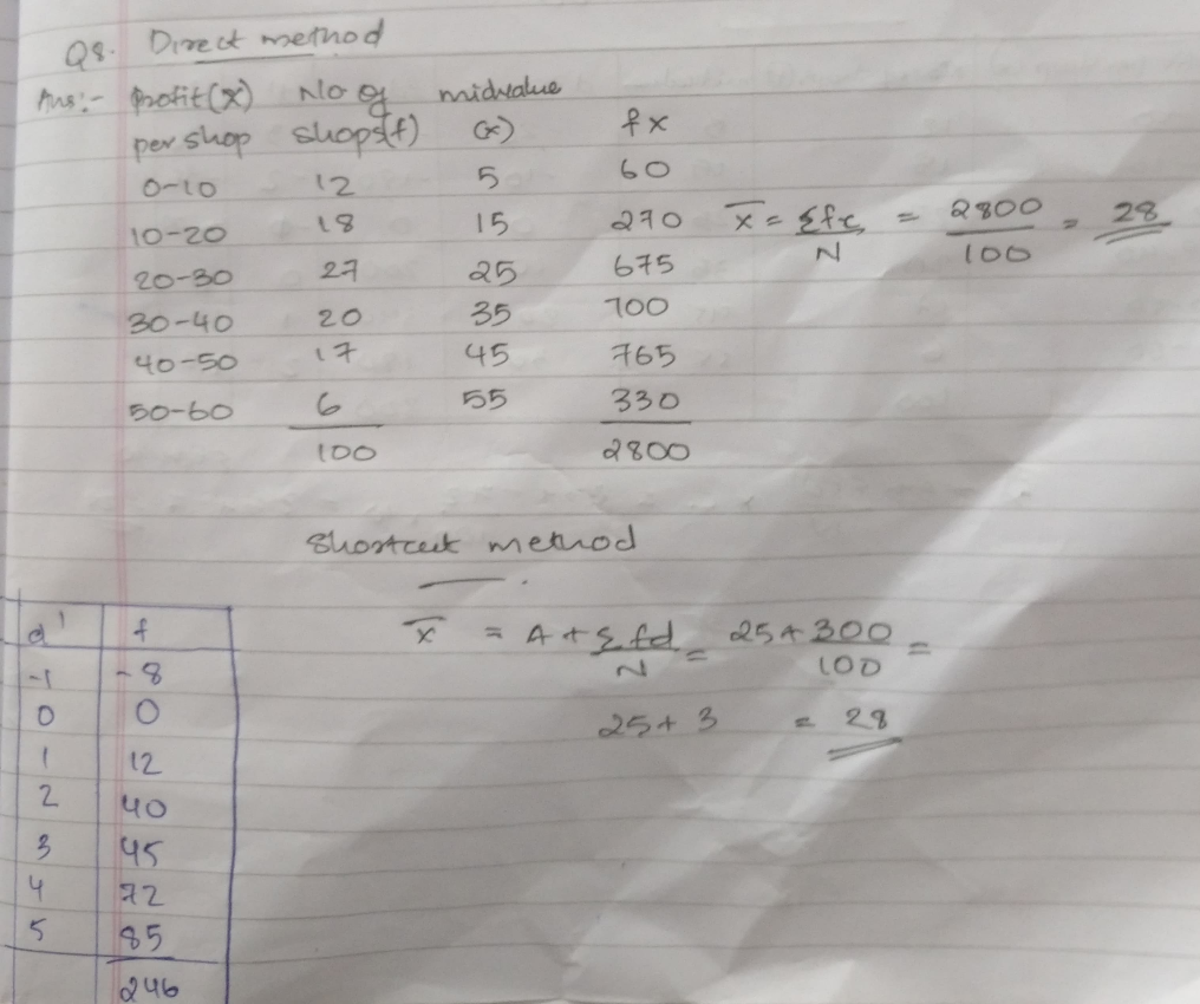 Q8. Direct method
Ans:- Profit(X) No of midvalue
per shop shops(f) (x) fx
0-10 12 5 60
10-20 18 15 270 x̄ = Σfx/N = 2800/100 = 28
20-30 27 25 675
30-40 20 35 700
40-50 17 45 765
50-60 6 55 330
100 2800
Shortcut method
x̄ = A + Σfd/N = 25+300/100 =
25+3 = 28
d' f
-1 -8
0 0
1 12
2 40
3 45
4 72
5 85
246